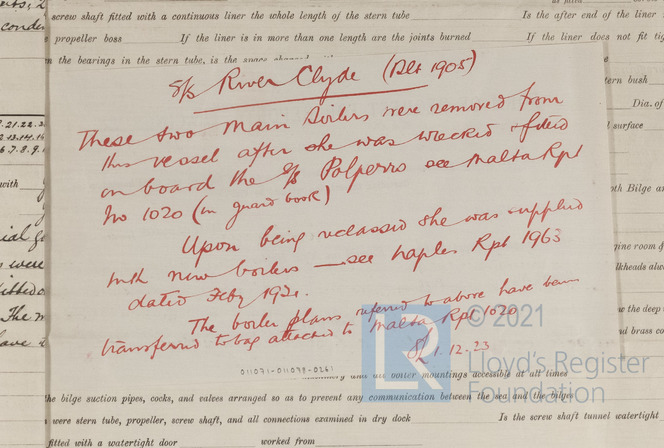 screw shaft fitted with a continuous liner the whole length of the stern tube
Is the after end of the liner
propeller boss
If the liner is in more than one length are the joints burned
If the liner does not fit
n the bearings in the stern tube, is the
S/S River Clyde (Blt 1905)
tern bush
Dia. of
surface
These two main boilers were removed from
this vessel after she was wrecked & fitted
on board the S/S Polperro see Malta Rpt
No 1020 (in guard book)
with
oth Bilge an
Upon being reclassed she was supplied
with new boilers — see Naples Rpt 1963
dated Feby 1921.
gine room
lkheads alwa
The boiler plans referred to above have been
transferred to bag attached to Malta Rpt 1020
1.12.23
the deep
nd brass co
© 2021
LR
Lloyd's Register
Foundation
011071-011079-0261
outer mountings accessible at all times
he bilge suction pipes, cocks, and valves arranged so as to prevent any communication between the sea and the bilges
were stern tube, propeller, screw shaft, and all connections examined in dry dock
Is the screw shaft tunnel watertight
fitted with a watertight door
worked from